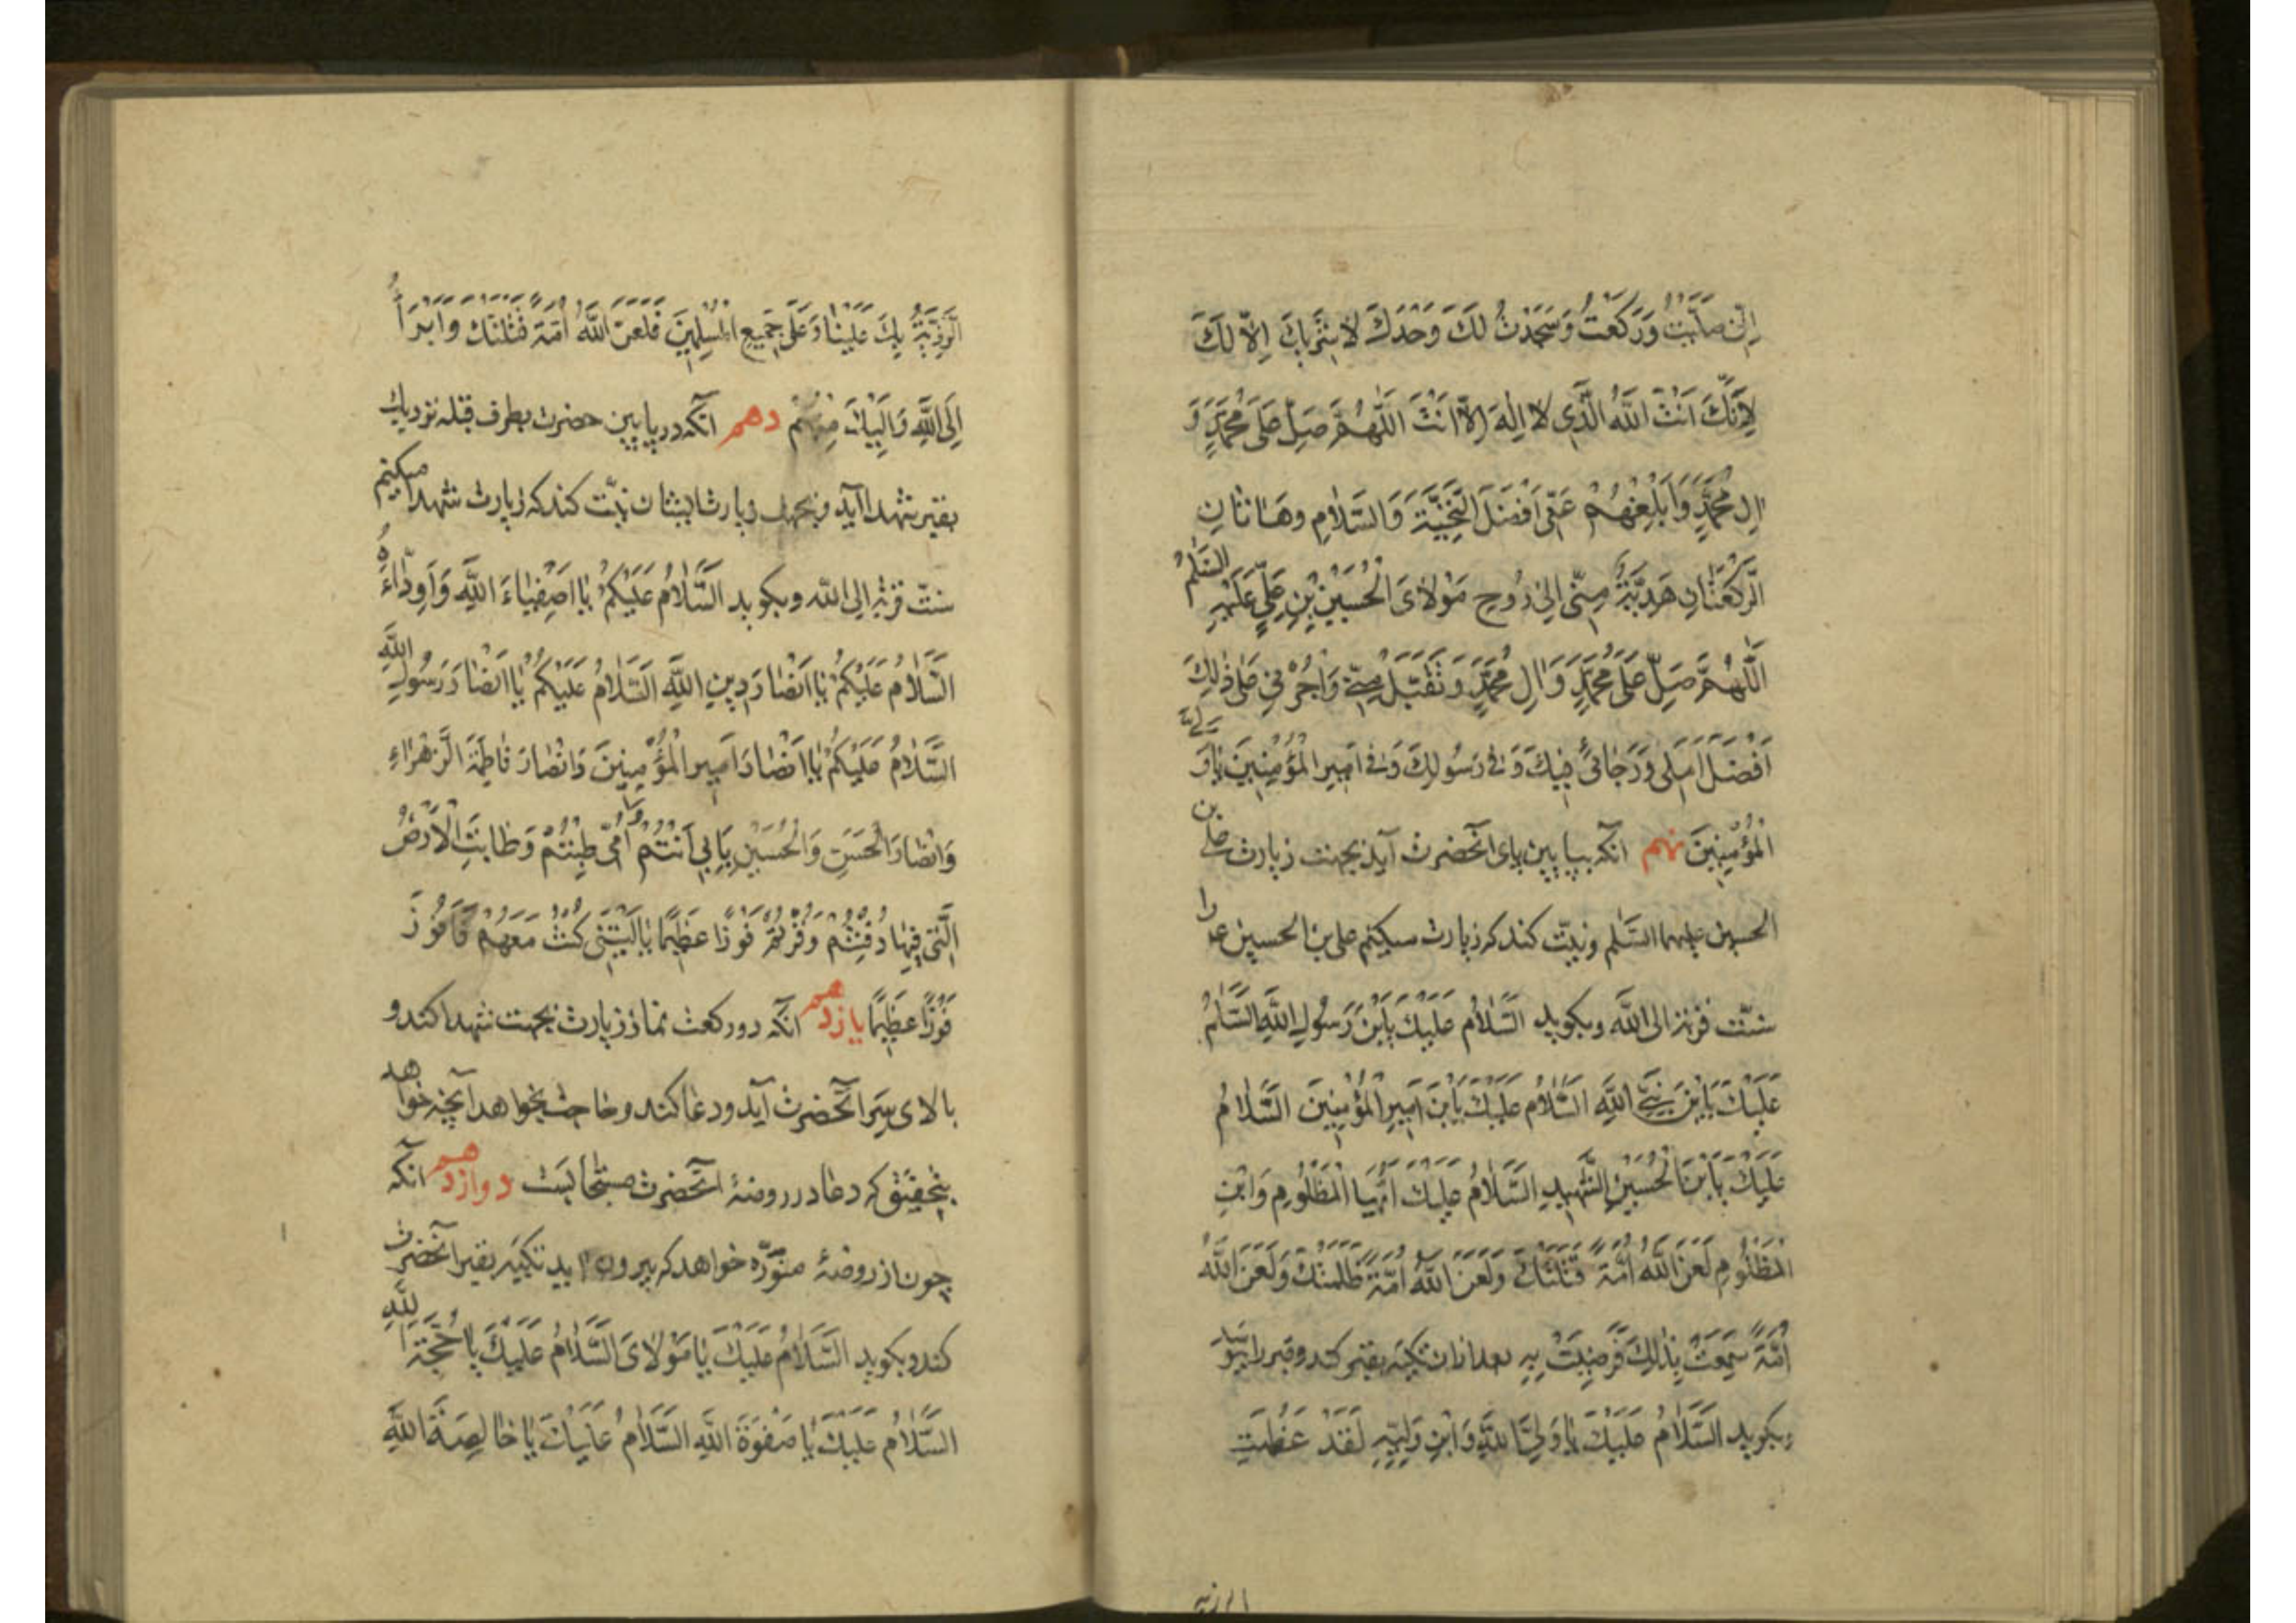 اِنّی صَلَّیْتُ وَرَکَعْتُ وَسَجَدْتُ لَکَ وَحْدَکَ لا شَرِیکَ اِلّا لَکَ
لِاَنَّکَ اَنْتَ اللّٰهُ الَّذی لا اِلٰهَ اِلّا اَنْتَ اَللّٰهُمَّ صَلِّ عَلٰی مُحَمَّدٍ وَ
اٰلِ مُحَمَّدٍ وَاَبْلِغْهُمْ عَنّی اَفْضَلَ التَّحِیَّةِ وَالسَّلامِ وَهاتانِ
الرَّکْعَتانِ هَدِیَّةٌ مِنّی اِلیٰ رُوحِ مَوْلایَ الْحُسَیْنِ بْنِ عَلِیٍّ عَلَیْهِ السَّلٰمُ
اَللّٰهُمَّ صَلِّ عَلٰی مُحَمَّدٍ وَاٰلِ مُحَمَّدٍ وَتَقَبَّلْ مِنّی وَاْجُرْنی عَلٰی ذٰلِکَ
اَفْضَلَ اَمَلی وَرَجائی فیکَ وَفی رَسُولِکَ وَفی اَمیرِ الْمُؤْمِنینَ یا وَلِیَّ
الْمُؤْمِنینَ نهم آنکه بپایین پای آنحضرت آید بجهت زیارت علی بن
الحسین علیهما السّلم ونیّت کند که زیارت میکنم علی بن الحسین ع را
سنّت قربة الی اللّٰه وبکوید اَلسَّلامُ عَلَیْکَ یَابْنَ رَسُولِ اللّٰهِ اَلسَّلٰمُ
عَلَیْکَ یَابْنَ نَبِیِّ اللّٰهِ اَلسَّلامُ عَلَیْکَ یَابْنَ اَمیرِ الْمُؤْمِنینَ اَلسَّلامُ
عَلَیْکَ یَابْنَ الْحُسَیْنِ الشَّهیدِ اَلسَّلامُ عَلَیْکَ اَیُّهَا الْمَظْلُومِ وَابْنِ
الْمَظْلُومِ لَعَنَ اللّٰهُ اُمَّةً قَتَلَتْکَ وَلَعَنَ اللّٰهُ اُمَّةً ظَلَمَتْکَ وَلَعَنَ اللّٰهُ
اُمَّةً سَمِعَتْ بِذٰلِکَ فَرَضِیَتْ بِهِ بعد ازان تکیه بقبر کند وقبر را ببوسد
وبکوید اَلسَّلامُ عَلَیْکَ یا وَلِیَّ اللّٰهِ وَابْنَ وَلِیِّهِ لَقَدْ عَظُمَتِ
الرزیه
الرَّزِیَّةُ بِکَ عَلَیْنا وَعَلٰی جَمیعِ الْمُسْلِمینَ فَلَعَنَ اللّٰهُ اُمَّةً قَتَلَتْکَ وَاَبْرَأُ
اِلَی اللّٰهِ وَاِلَیْکَ مِنْهُمْ دهم آنکه در پایین حضرت بطرف قبله نزدیک
بقبر شهدا آید وبجهت زیارت ایشان نیّت کند که زیارت شهدا میکنم
سنّت قربة الی اللّٰه وبکوید اَلسَّلامُ عَلَیْکُمْ یا اَصْفِیاءَ اللّٰهِ وَاَوِدّاءَهُ
اَلسَّلامُ عَلَیْکُمْ یا اَنْصارَ دینِ اللّٰهِ اَلسَّلامُ عَلَیْکُمْ یا اَنْصارَ رَسُولِ اللّٰهِ
اَلسَّلامُ عَلَیْکُمْ یا اَنْصارَ اَمیرِ الْمُؤْمِنینَ وَاَنْصارَ فاطِمَةَ الزَّهْراءِ
وَاَنْصارَ الْحَسَنِ وَالْحُسَیْنِ بِاَبی اَنْتُمْ وَاُمّی طِبْتُمْ وَطابَتِ الْاَرْضُ
الَّتی فیها دُفِنْتُمْ وَفُزْتُمْ فَوْزًا عَظیمًا یا لَیْتَنی کُنْتُ مَعَهُمْ فَاَفُوزَ
فَوْزًا عَظیمًا یازدهم آنکه دو رکعت نماز زیارت بجهت شهدا کند و
بالای سر آنحضرت آید ودعا کند وحاجت بخواهد آنچه خواهد
بتحقیق که دعا در روضهٔ آنحضرت مستجابست دوازدهم آنکه
چون از روضهٔ منوّره خواهد که بیرون آید تکیه بقبر آنحضرت
کند وبکوید اَلسَّلامُ عَلَیْکَ یا مَوْلایَ اَلسَّلامُ عَلَیْکَ یا حُجَّةَ اللّٰهِ
اَلسَّلامُ عَلَیْکَ یا صَفْوَةَ اللّٰهِ اَلسَّلامُ عَلَیْکَ یا خالِصَةَ اللّٰهِ